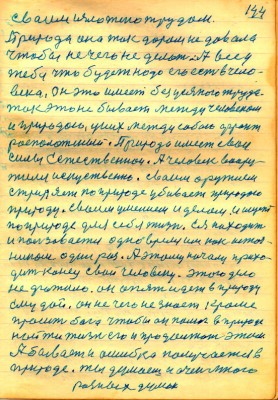 144
своим
трудом.
Природа она так даром не давала
чтобы нечего не делат. А весу
тебя что будет надо его есть в чело-
века, Он это имеет без всякого труда
так это не бывает между человеком
и природою, у них между собою
расположений. Природа имеет свои
силы Естественное. А человек воору-
жили искуственно. своим оружием
стриляет по природе убивает природою
природу. своим умением и делом, и ищет
по природе для себя жизн. Ея находит
и пользывается одно время им как источ-
ником один раз. А этому началу прихо-
дит конец свои человеку. Этого дело
не држиано. он опят идет в природу
ему дай. он не чего не знает, кроме
просит бога чтобы он помог в природе
найти жизн его и продолжит этим
А бывает и ошибка получается в
природе. ты думаеш и очен много
разных думок